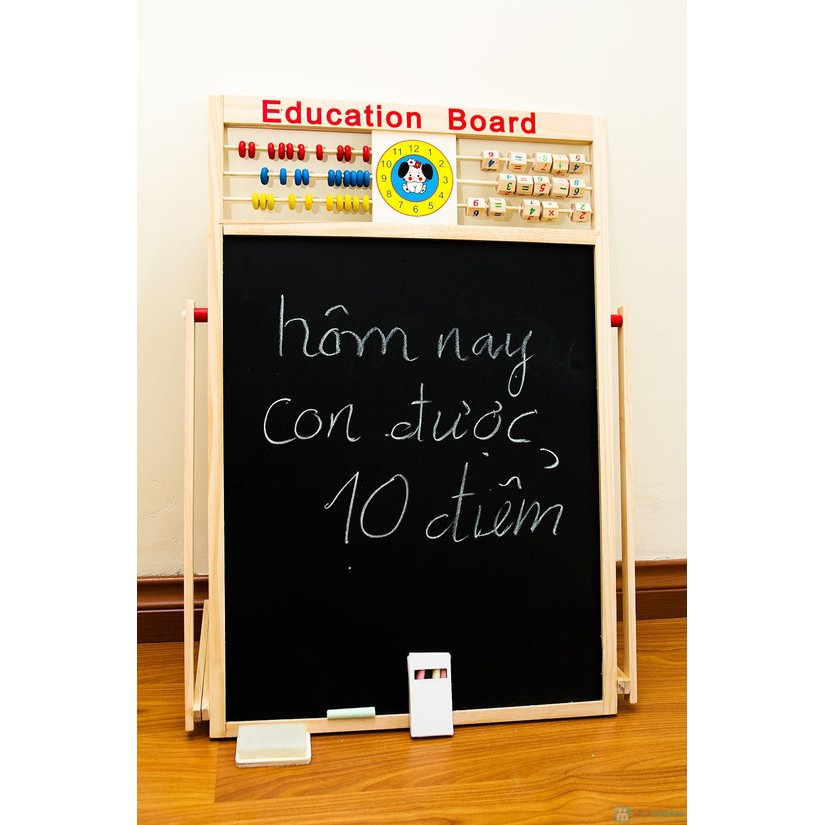 Education Board
11 12 1
10 2
9 3
8 4
7 6 5
hôm nay
con được
10 điểm